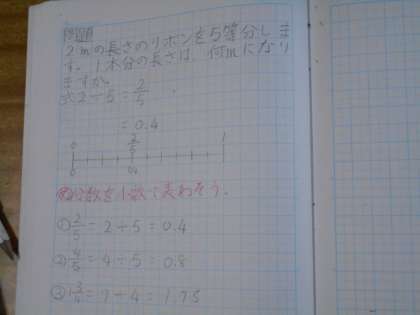 2mの長さのリボンを5等分しま
す。1本分の長さは、何mになり
ますか。
式2÷5=2/5
=0.4
0 2/5 1
0 0.4
分数を小数で表わそう。
①2/5=2÷5=0.4
②4/5=4÷5=0.8
③1 3/4=7÷4=1.75